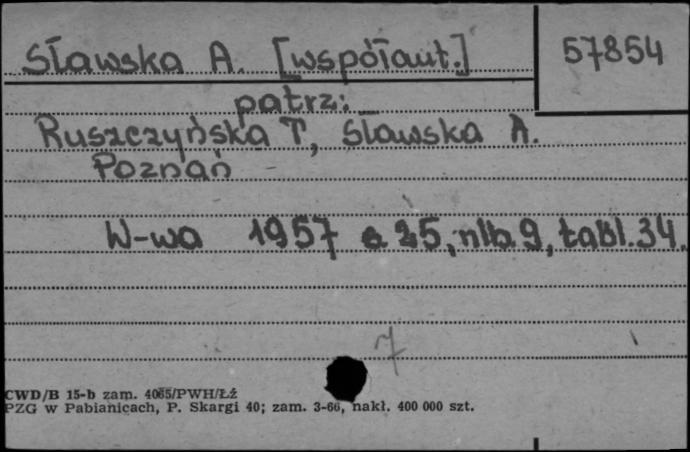 Sławska A. [współaut.] 57854
patrz:
Ruszczyńska T, Sławska A.
Poznań
W-wa 1957 s. 25, nlb. 9, tabl. 34.
7
CWD/B 15-b zam. 4065/PWH/Łź
PZG w Pabianicach, P. Skargi 40; zam. 3-66, nakł. 400 000 szt.